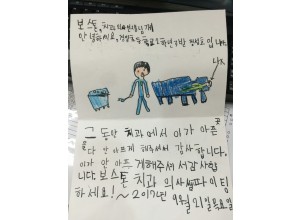 보스톤치과의사선생님께
안녕하세요, 초등학교 2학년 반 입니다.
나
그 동안 치과에서 이가 아픈
곳
을 다 안 아프게 해주셔서 감사합니다.
이가 안 아프게해주셔서 감사합
니다. 보스톤 치과 의사쌤파이팅
하세요!~ 2017년 9월 21일 목요일